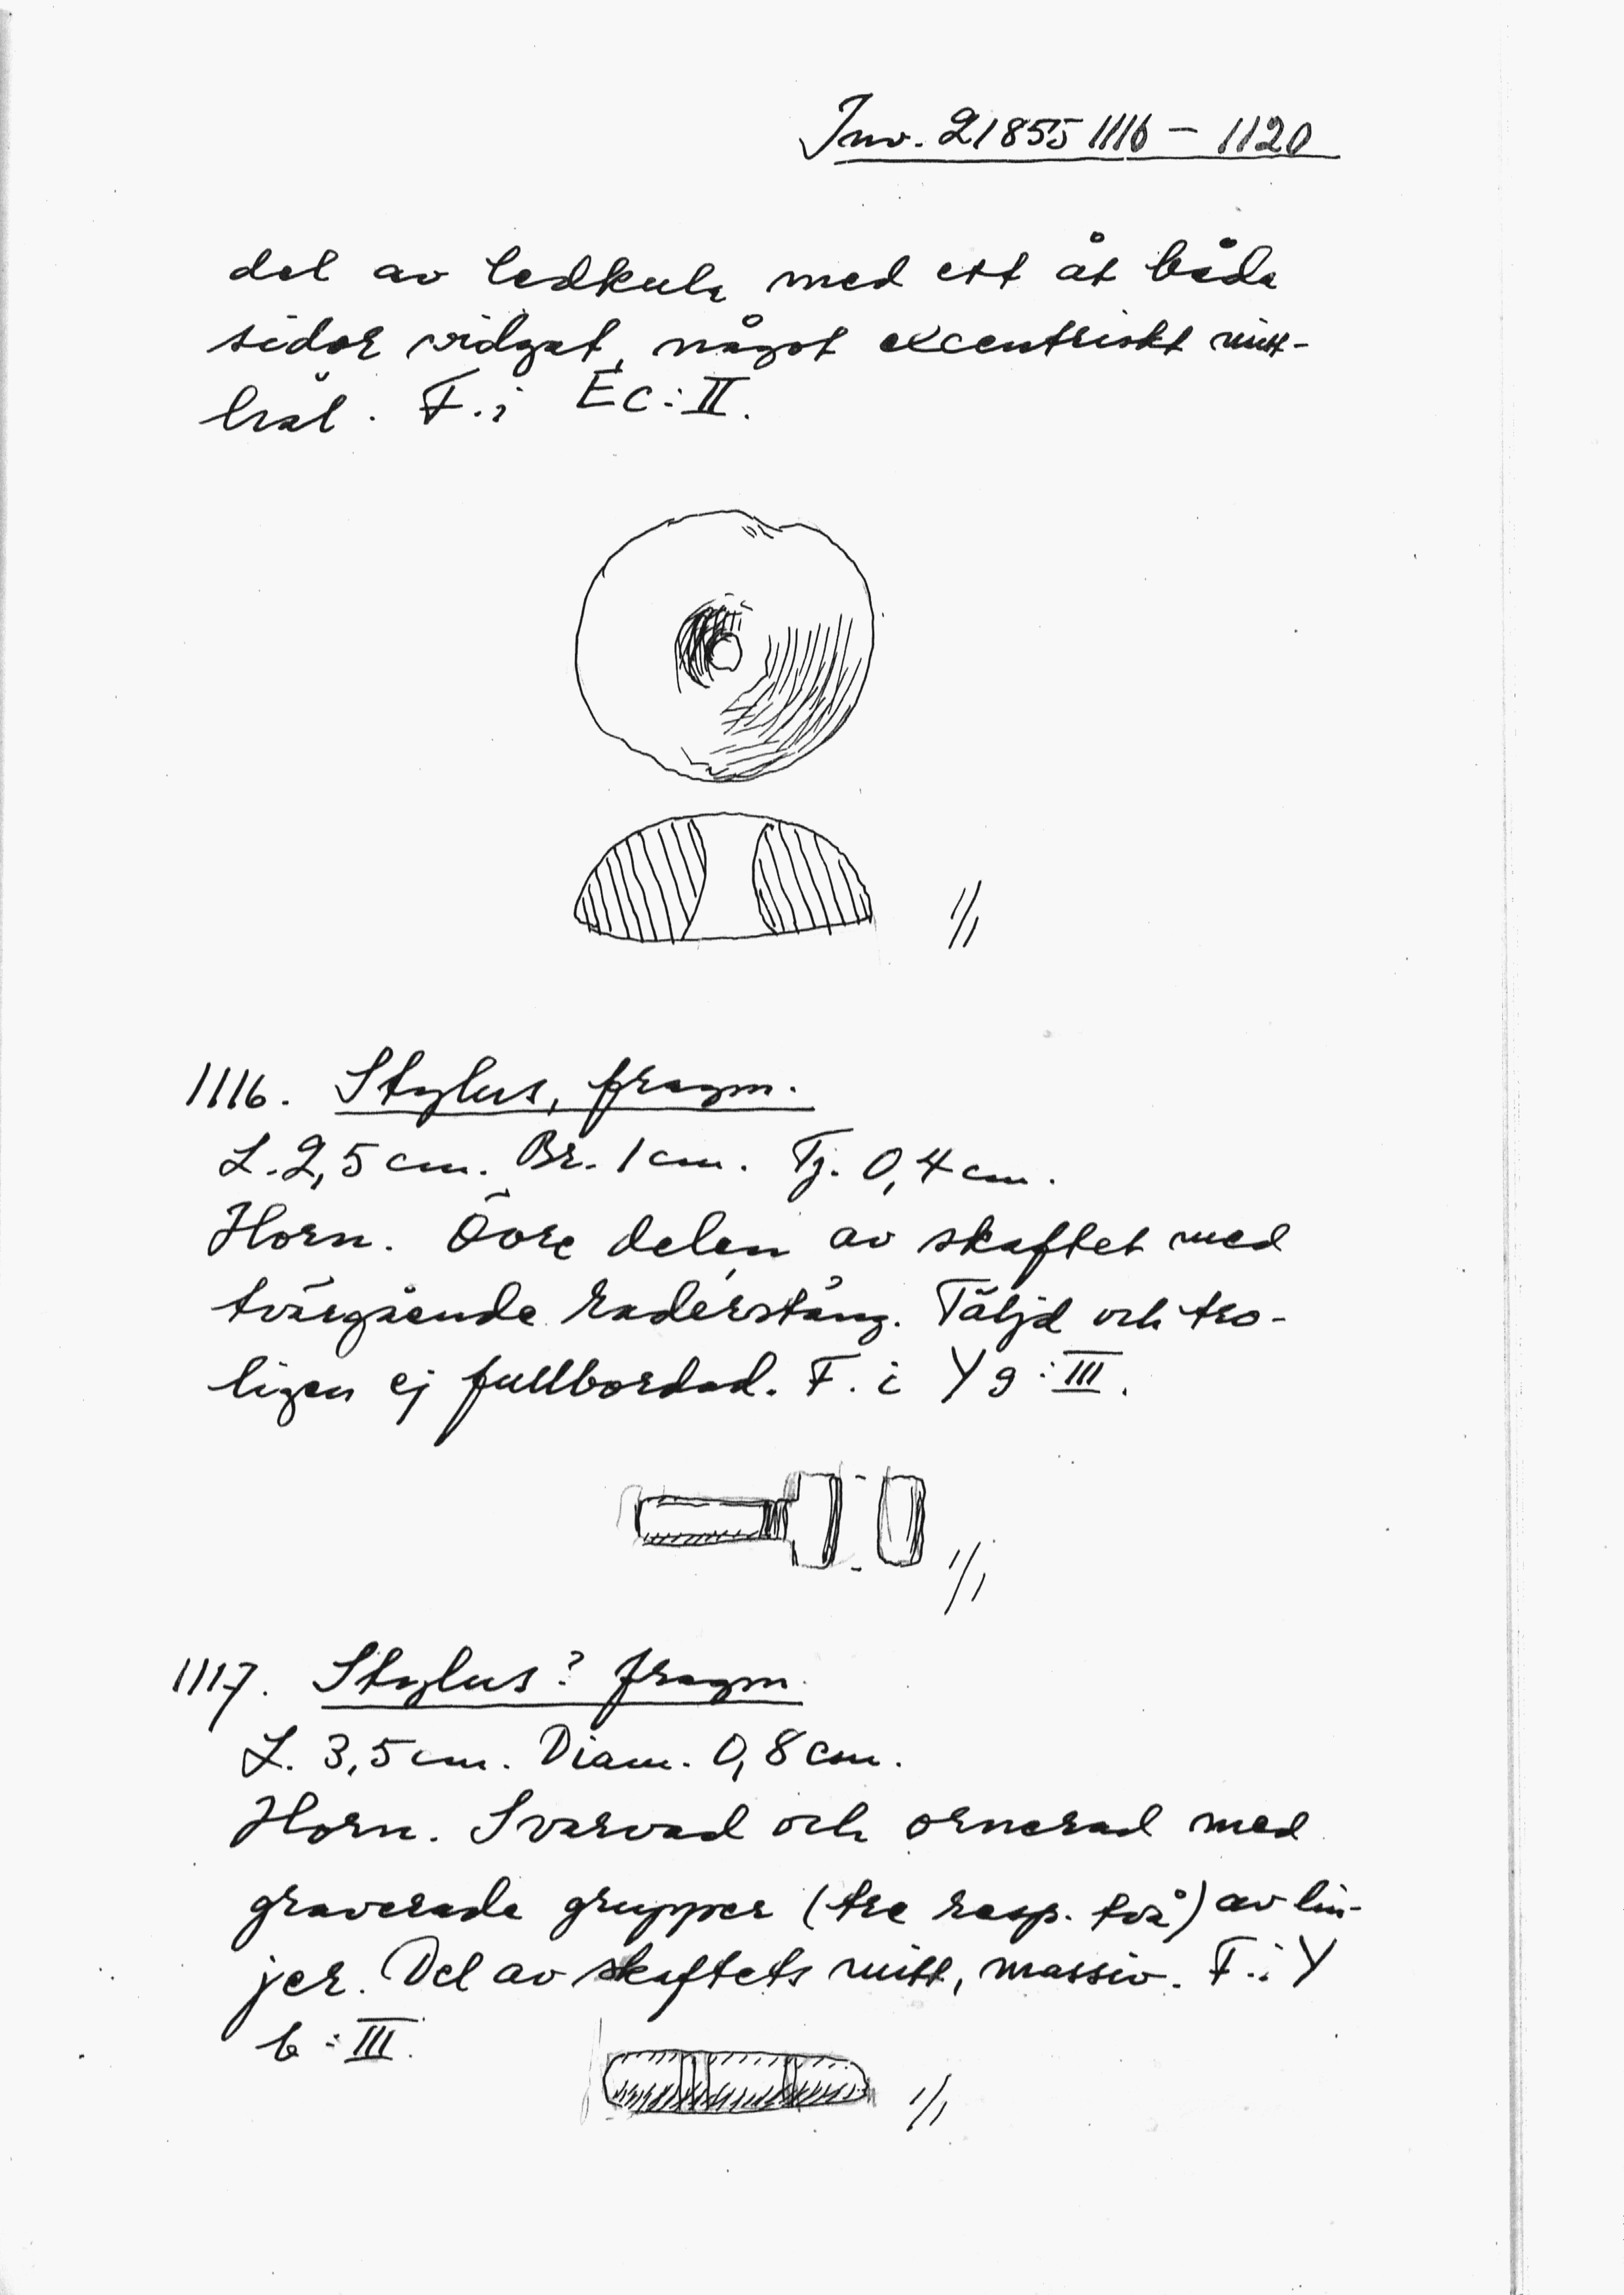 Inv. 21855 1116 – 1120
del av ledkula med ett åt båda
sidor vidgat, något excentriskt mitt-
hål. F. i Ec:II.
1/1
1116. Stylus, fragm.
L. 2,5 cm. Br. 1 cm. Tj. 0,4 cm.
Horn. Övre delen av skaftet med
tvärgående raderstång. Täljd och tro-
ligen ej fullbordad. F. i Y g:III.
1/1
1117. Stylus? fragm.
L. 3,5 cm. Diam. 0,8 cm.
Horn. Svarvad och ornerad med
graverade grupper (tre resp. två) av lin-
jer. Del av skaftets mitt, massiv. F. i Y
b:III.
1/1